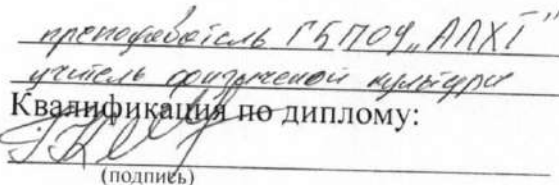 преподаватель ГБПОУ „АЛХТ"
учитель физической культуры
Квалификация по диплому:
(подпись)